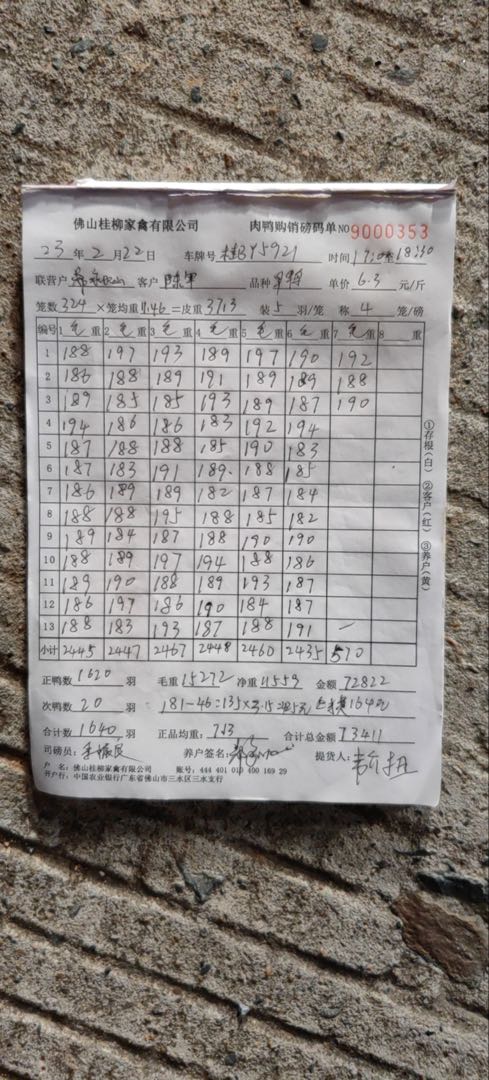 佛山桂柳家禽有限公司 肉鸭购销磅码单 NO 9000353
23 年 2 月 22 日 车牌号 桂BY5921 时间
联营户 客户 陈军 品种 单价 6.3 元/斤
笼数 324 ×笼均重 11.46 =皮重 3713 装 5 羽/笼 称 4 笼/磅
编号 1 毛 重 2 毛 重 3 毛 重 4 毛 重 5 毛 重 6 毛 重 7 毛 重 8 重
1 188 197 193 189 197 190 192
2 186 188 189 191 189 189 188
3 189 185 185 193 189 187 190
4 194 186 186 183 192 194
5 187 188 188 185 190 183
6 187 183 191 189 188 185
7 186 189 189 182 187 184
8 188 188 195 188 185 182
9 189 184 187 188 190 190
10 188 189 197 194 188 186
11 189 190 188 189 193 187
12 186 197 186 190 184 187
13 188 183 193 187 188 191 —
小计 2445 2447 2467 2448 2460 2435 570
正鸭数 1620 羽 毛重 15272 净重 11559 金额 72822
次鸭数 20 羽 181-46=135×3.15
合计数 1640 羽 正品均重: 7.13 合计总金额 73411
司磅员: 养户签名: 提货人:
户 名: 佛山桂柳家禽有限公司 账号: 444 401 010 400 169 29
开户行: 中国农业银行广东省佛山市三水区三水支行
①存根(白) ②客户(红) ③养户(黄)